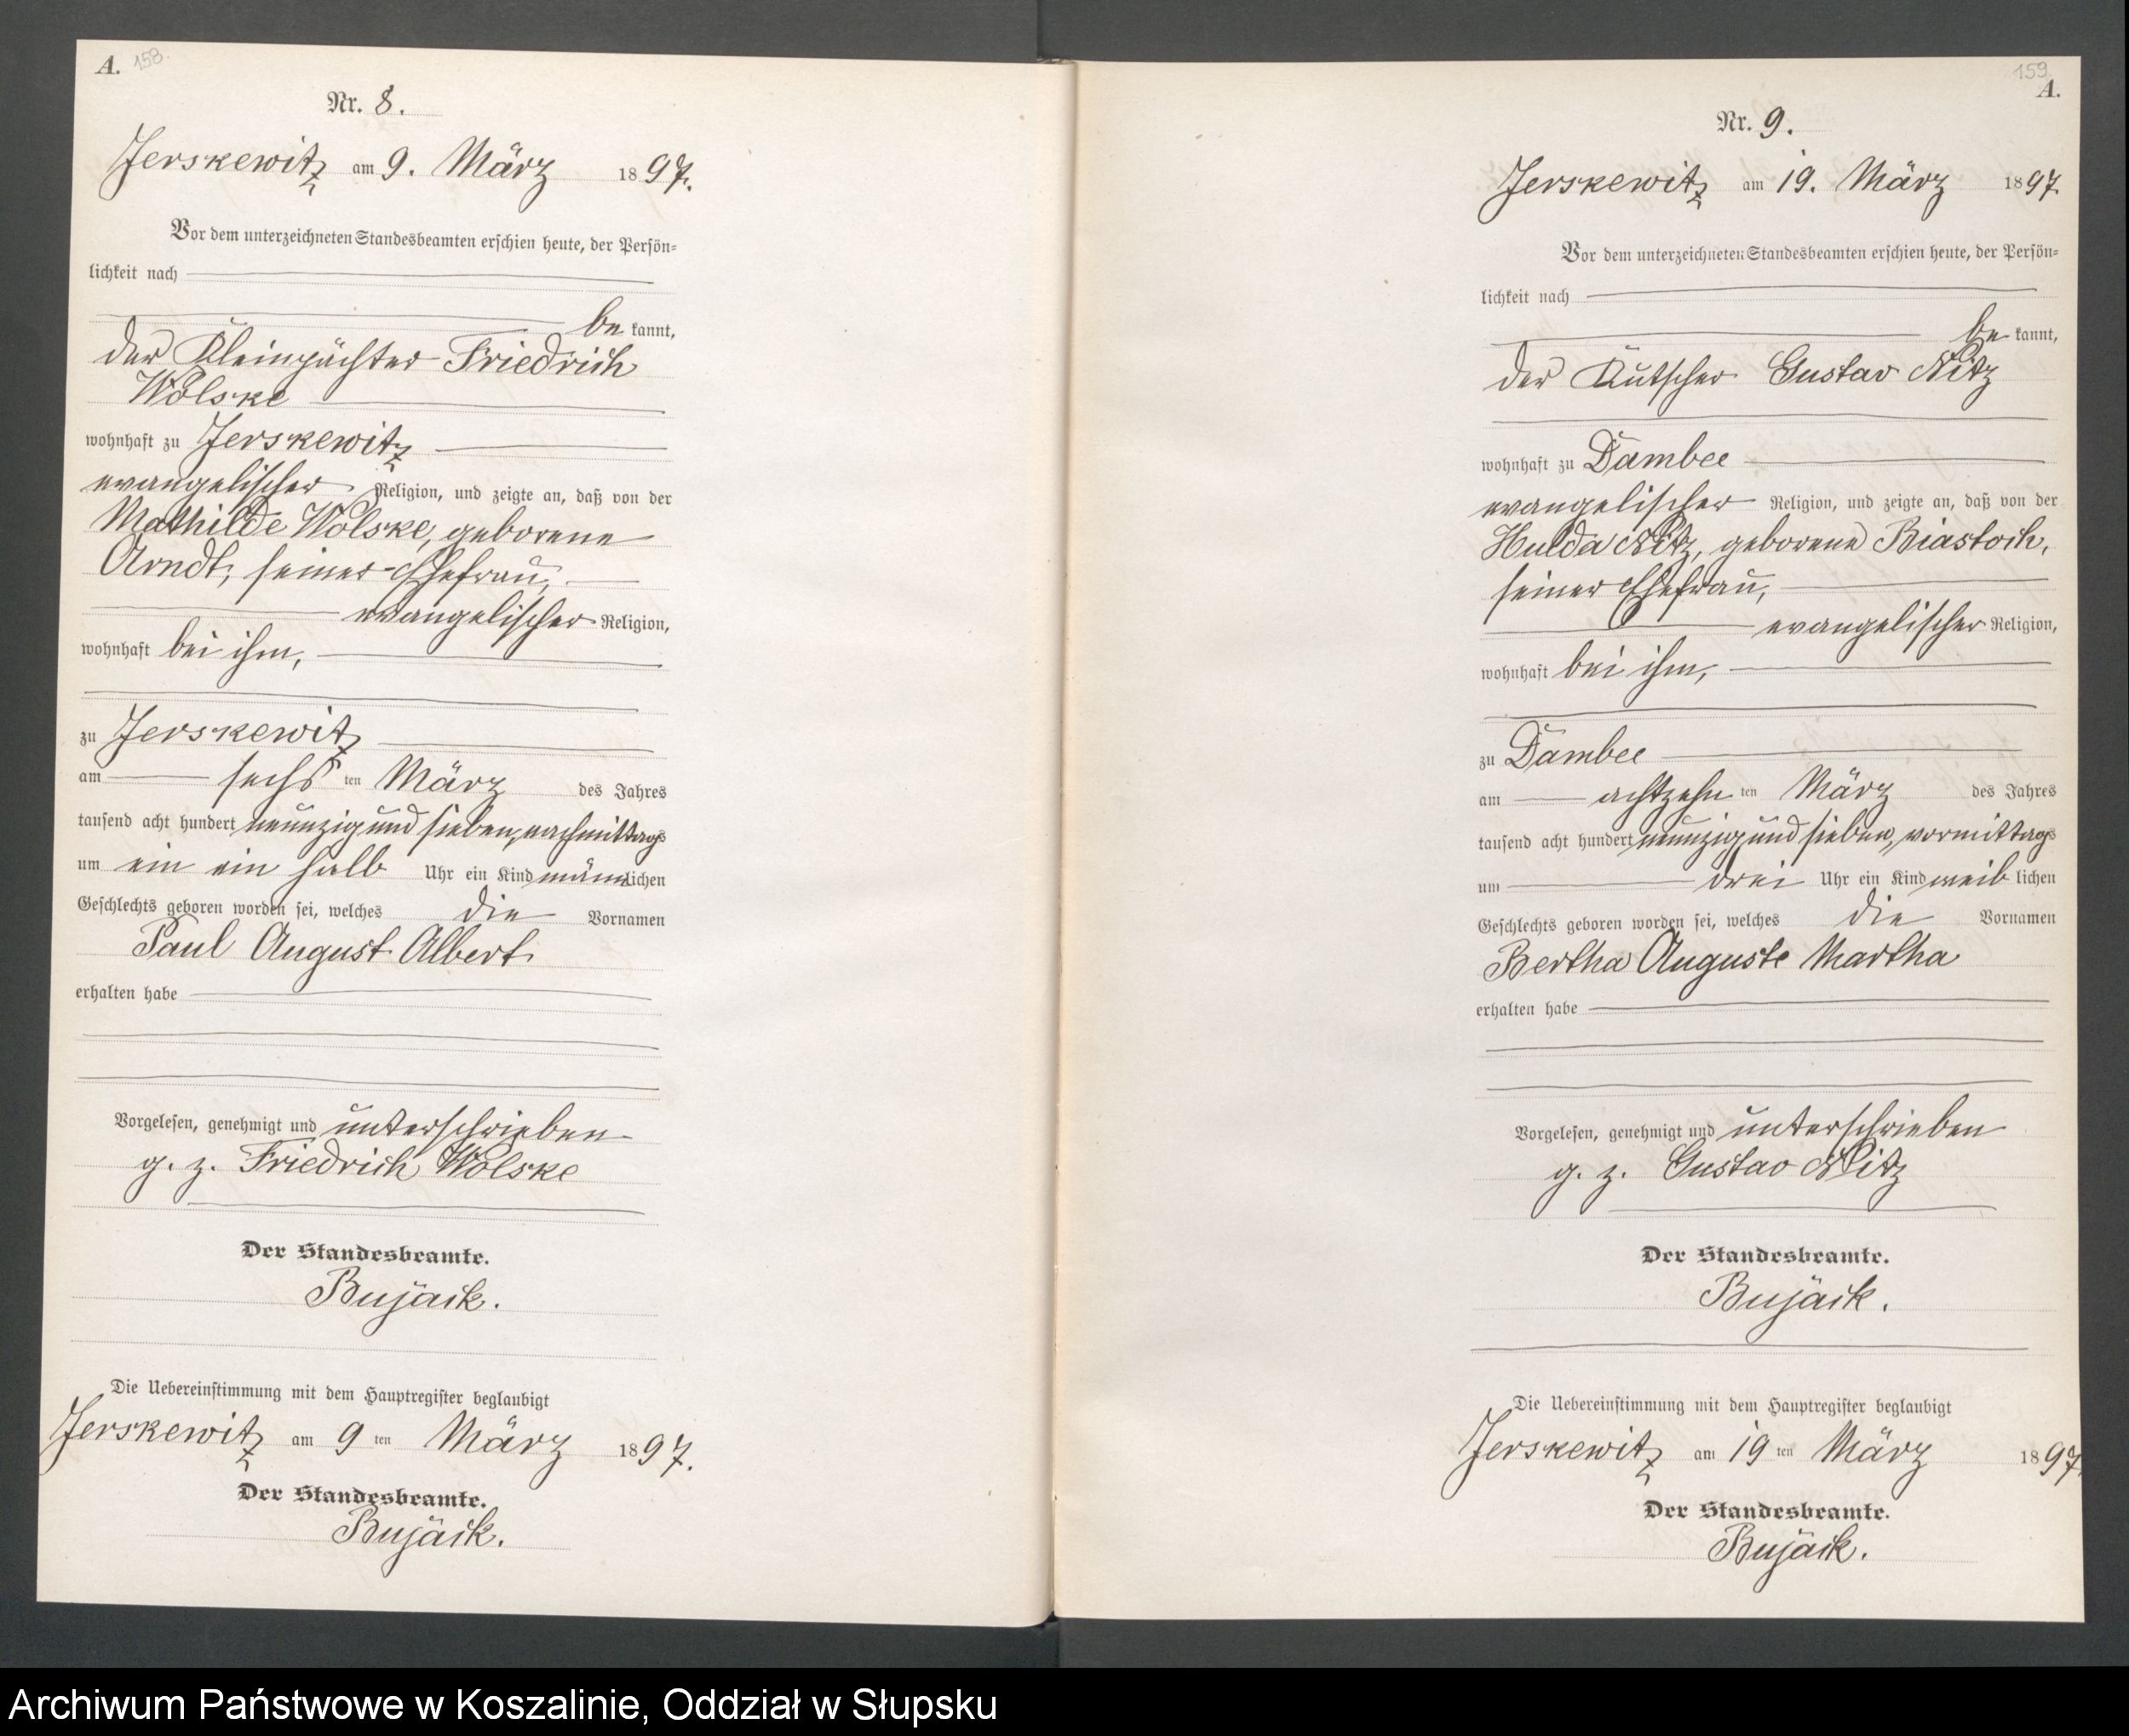 A. 158.
Nr. 8.
Jerskewitz am 9. März 1897.
Vor dem unterzeichneten Standesbeamten erschien heute, der Persön-
lichkeit nach
be kannt,
der Kleinpächter Friedrich
Wolske
wohnhaft zu Jerskewitz
evangelischer Religion, und zeigte an, daß von der
Mathilde Wolske, geborene
Arndt, seiner Ehefrau,
evangelischer Religion,
wohnhaft bei ihm,
zu Jerskewitz
am sechs ten März des Jahres
tausend acht hundert neunzig und sieben, nachmittags
um ein ein halb Uhr ein Kind männlichen
Geschlechts geboren worden sei, welches die Vornamen
Paul August Albert
erhalten habe
Vorgelesen, genehmigt und unterschrieben
g. z. Friedrich Wolske
Der Standesbeamte.
Bujack.
Die Uebereinstimmung mit dem Hauptregister beglaubigt
Jerskewitz am 9 ten März 1897.
Der Standesbeamte.
Bujack.
159.
A.
Nr. 9.
Jerskewitz am 19. März 1897.
Vor dem unterzeichneten Standesbeamten erschien heute, der Persön-
lichkeit nach
be kannt,
der Kutscher Gustav Nitz
wohnhaft zu Dambee
evangelischer Religion, und zeigte an, daß von der
Hulda Nitz, geborene Biastoch,
seiner Ehefrau,
evangelischer Religion,
wohnhaft bei ihm,
zu Dambee
am achtzehn ten März des Jahres
tausend acht hundert neunzig und sieben, vormittags
um drei Uhr ein Kind weib lichen
Geschlechts geboren worden sei, welches die Vornamen
Bertha Auguste Martha
erhalten habe
Vorgelesen, genehmigt und unterschrieben
g. z. Gustav Nitz
Der Standesbeamte.
Bujack.
Die Uebereinstimmung mit dem Hauptregister beglaubigt
Jerskewitz am 19 ten März 1897.
Der Standesbeamte.
Bujack.
Archiwum Państwowe w Koszalinie, Oddział w Słupsku